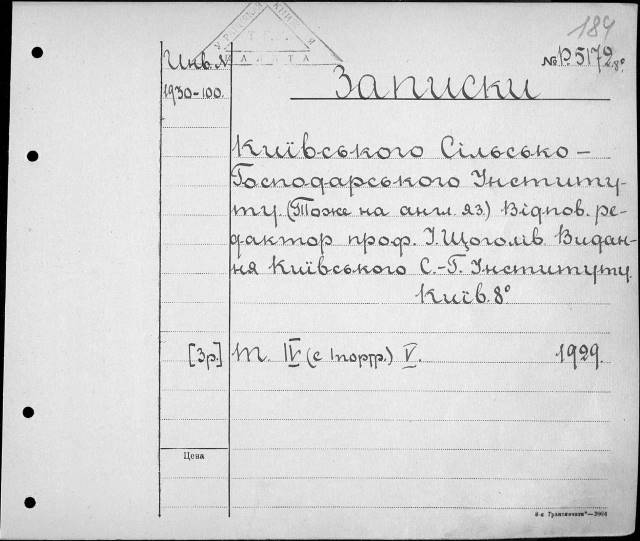 184
Инв. №
№ Р.5172 8°
1930-100.
Записки
Київського Сільсько –
Господарського Інститу-
ту. (Тоже на англ. яз.) Відпов. ре-
дактор проф. І. Щоголів. Видан-
ня Київського С.-Г. Інституту.
Київ. 8°
[3р.] т. IV (с 1 портр.) V. 1929.
Цена